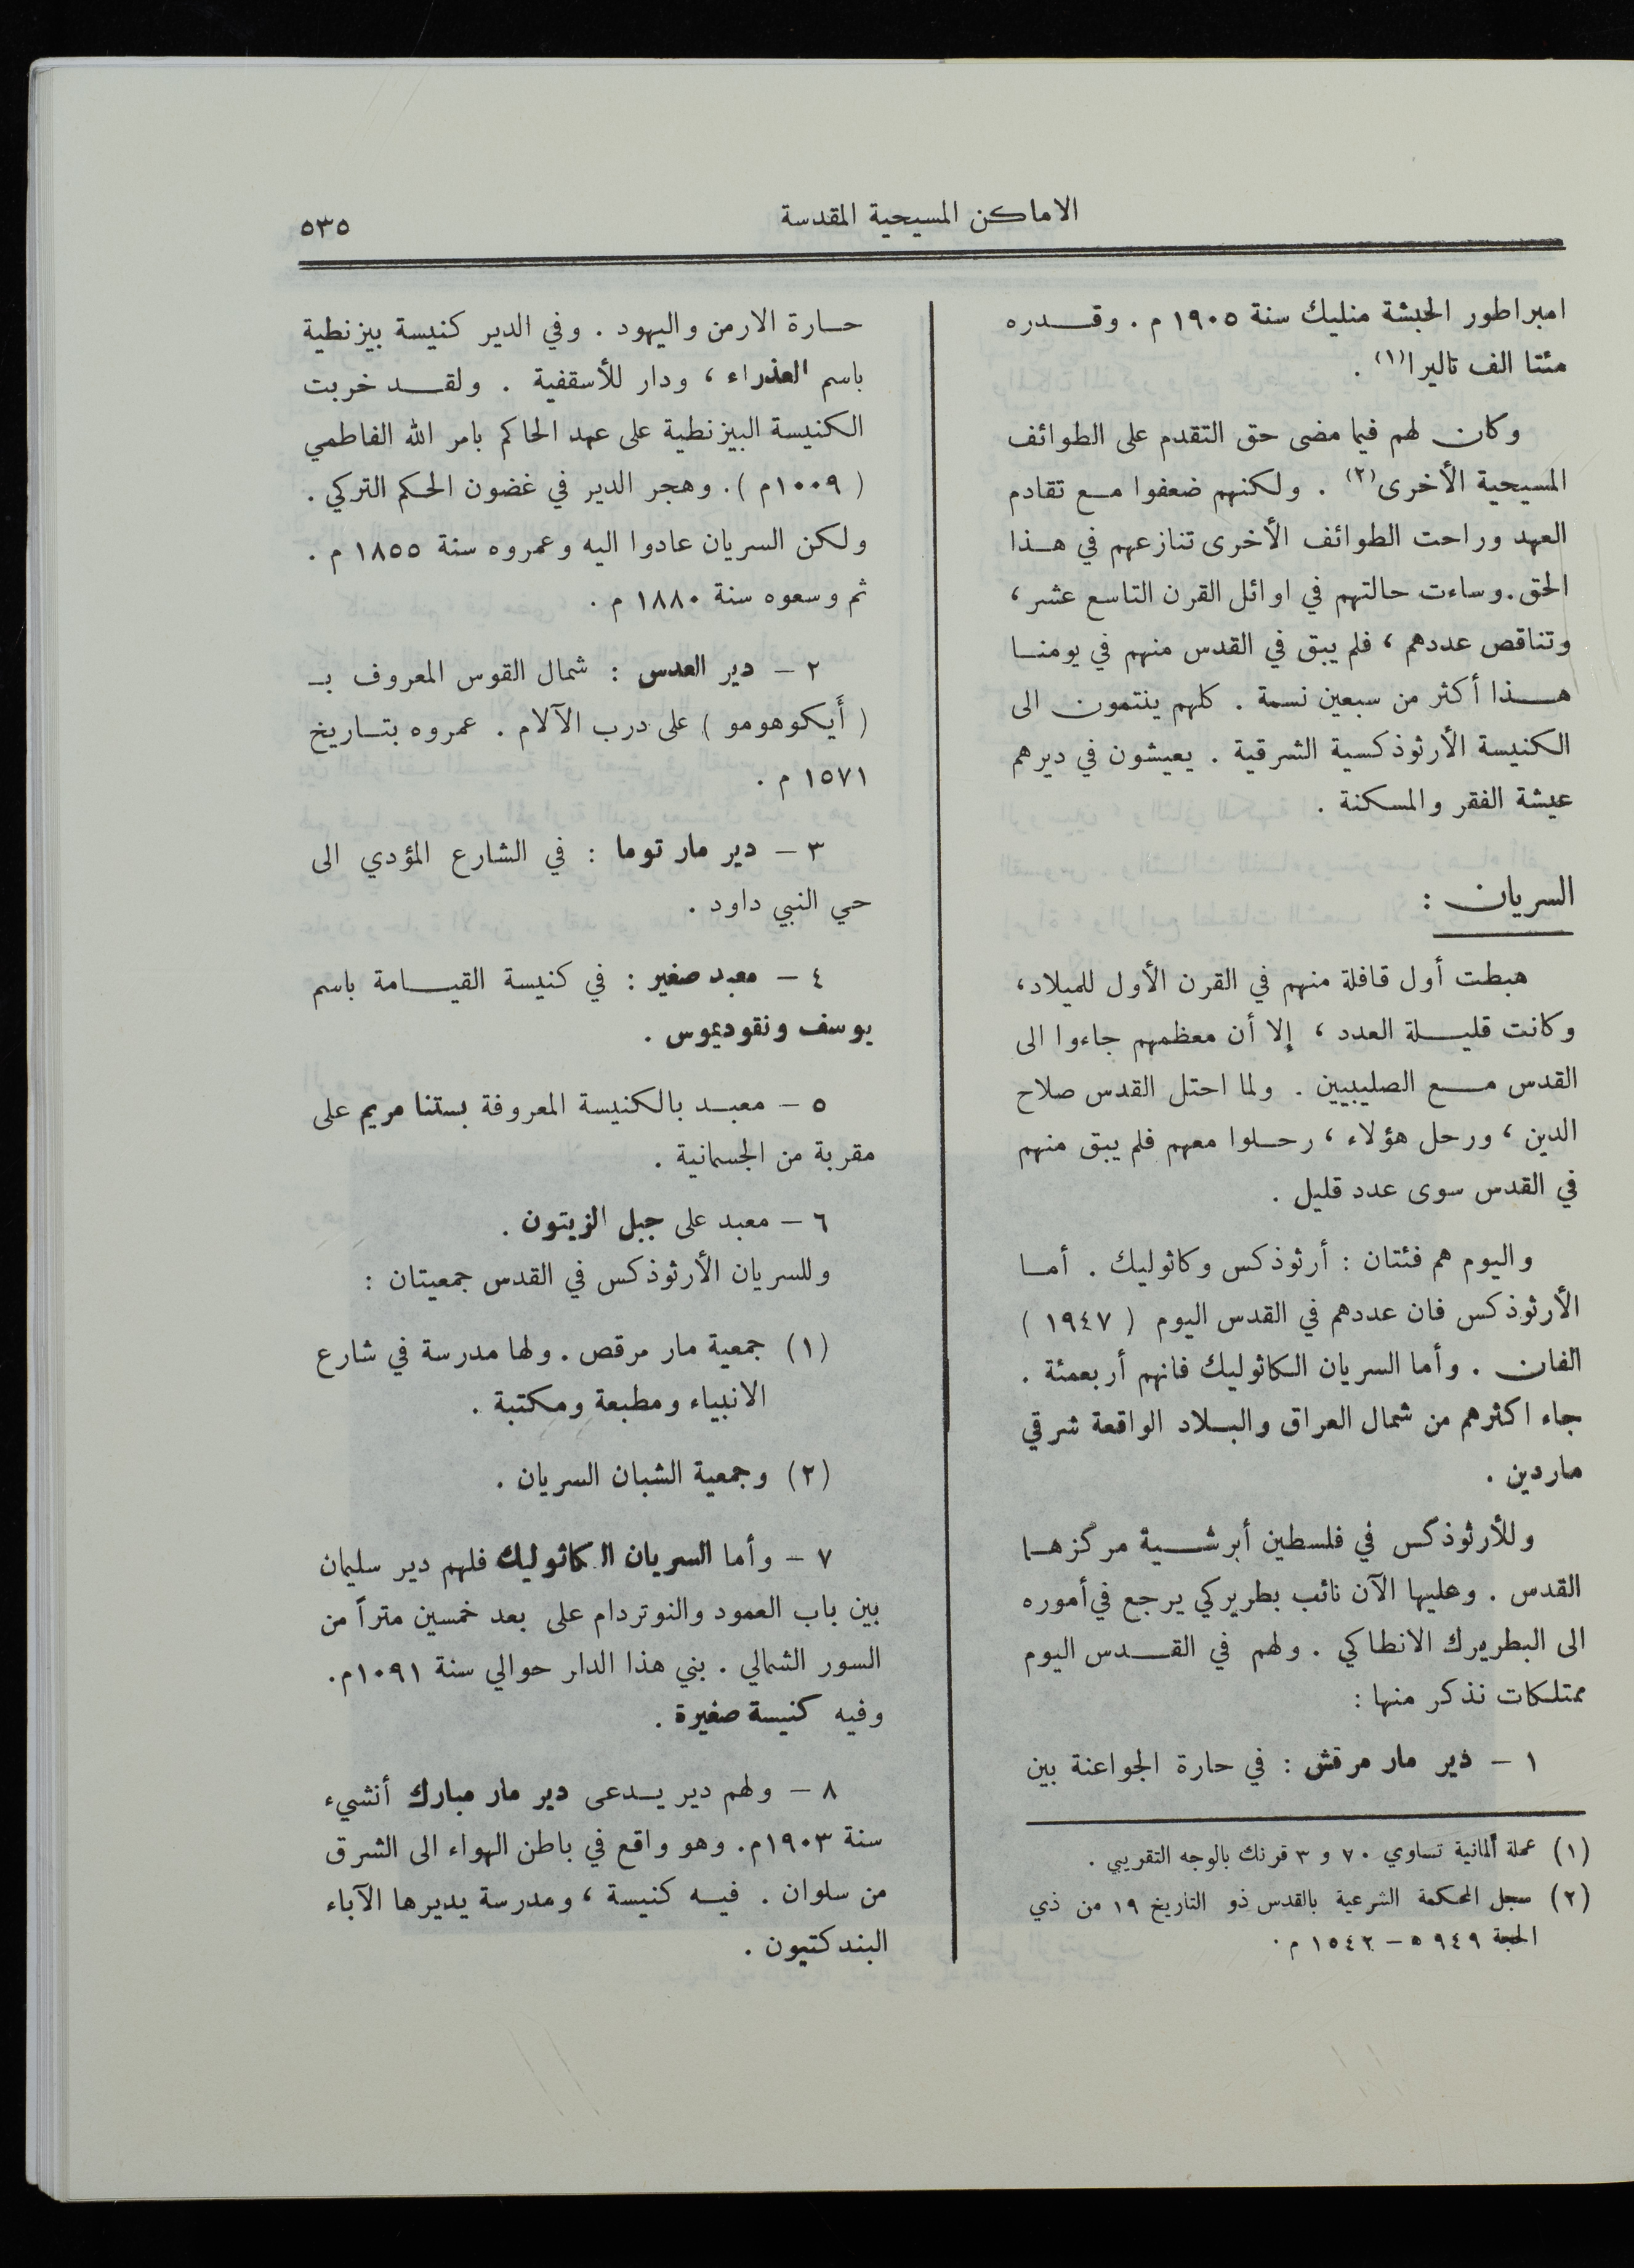 الاماكن المسيحية المقدسة
٥٣٥
امبراطور الحبشة منليك سنة ١٩٠٥ م . وقدره
مئتا الف تاليرا(١) .
وكان لهم فيما مضى حق التقدم على الطوائف
المسيحية الأخرى(٢) . ولكنهم ضعفوا مع تقادم
العهد وراحت الطوائف الأخرى تنازعهم في هذا
الحق . وساءت حالتهم في اوائل القرن التاسع عشر ،
وتناقص عددهم ، فلم يبق في القدس منهم في يومنا
هذا أكثر من سبعين نسمة . كلهم ينتمون الى
الكنيسة الأرثوذكسية الشرقية . يعيشون في ديرهم
عيشة الفقر والمسكنة .
السريان :
هبطت أول قافلة منهم في القرن الأول للميلاد ،
وكانت قليلة العدد ، إلا أن معظمهم جاءوا الى
القدس مع الصليبيين . ولما احتل القدس صلاح
الدين ، ورحل هؤلاء ، رحلوا معهم فلم يبق منهم
في القدس سوى عدد قليل .
واليوم هم فئتان : أرثوذكس وكاثوليك . أما
الأرثوذكس فان عددهم في القدس اليوم ( ١٩٤٧ )
الفان . وأما السريان الكاثوليك فانهم أربعمئة .
جاء اكثرهم من شمال العراق والبلاد الواقعة شرقي
ماردين .
وللأرثوذكس في فلسطين أبرشية مركزها
القدس . وعليها الآن نائب بطريركي يرجع في أموره
الى البطريرك الانطاكي . ولهم في القدس اليوم
ممتلكات نذكر منها :
١ – دير مار مرقش : في حارة الجواعنة بين
(١) عملة ألمانية تساوي ٧٠ و ٣ قرنك بالوجه التقريبي .
(٢) سجل المحكمة الشرعية بالقدس ذو التاريخ ١٩ من ذي
الحجة ٩٤٩ ه – ١٥٤٢ م .
حارة الارمن واليهود . وفي الدير كنيسة بيزنطية
باسم العذراء ، ودار للأسقفية . ولقد خربت
الكنيسة البيزنطية على عهد الحاكم بامر الله الفاطمي
( ١٠٠٩م ) . وهجر الدير في غضون الحكم التركي .
ولكن السريان عادوا اليه وعمروه سنة ١٨٥٥ م .
ثم وسعوه سنة ١٨٨٠ م .
٢ – دير العدس : شمال القوس المعروف بـ
( أَيكوهومو ) على درب الآلام . عمروه بتاريخ
١٥٧١ م .
٣ – دير مار توما : في الشارع المؤدي الى
حي النبي داود .
٤ – معبد صغير : في كنيسة القيامة باسم
يوسف ونقوديموس .
٥ – معبد بالكنيسة المعروفة بستنا مريم على
مقربة من الجسمانية .
٦ – معبد على جبل الزيتون .
وللسريان الأرثوذكس في القدس جمعيتان :
(١) جمعية مار مرقص . ولها مدرسة في شارع
الانبياء ومطبعة ومكتبة .
(٢) وجمعية الشبان السريان .
٧ – وأما السريان الكاثوليك فلهم دير سليمان
بين باب العمود والنوتردام على بعد خمسين متراً من
السور الشمالي . بني هذا الدار حوالي سنة ١٠٩١م .
وفيه كنيسة صغيرة .
٨ – ولهم دير يدعى دير مار مبارك أنشيء
سنة ١٩٠٣م . وهو واقع في باطن الهواء الى الشرق
من سلوان . فيه كنيسة ، ومدرسة يديرها الآباء
البندكتيون .